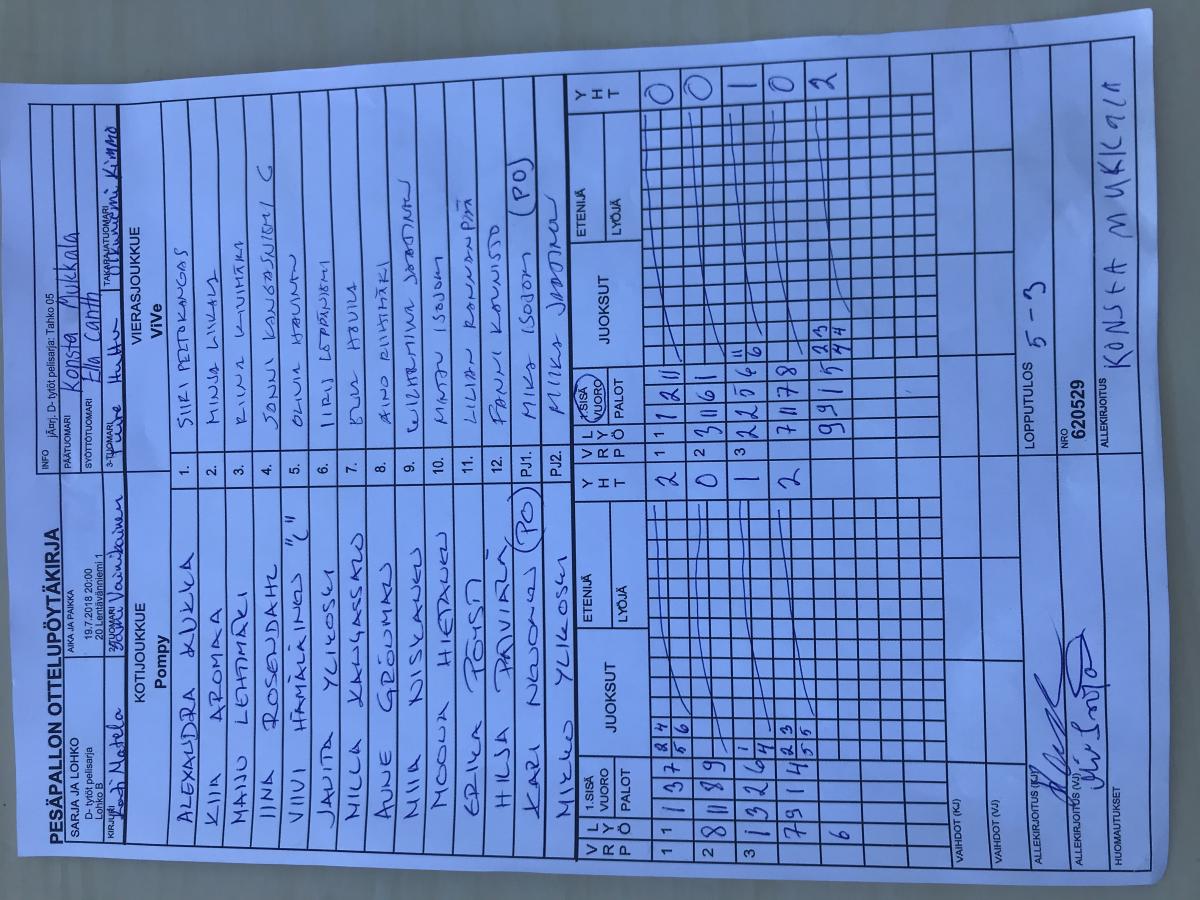 PESÄPALLON OTTELUPÖYTÄKIRJA
SARJA JA LOHKO
D- tytöt pelisarja
Lohko B
AIKA JA PAIKKA
19.7.2018 20:00
20 Lentävänniemi 1
INFO jÄorj. D- tytöt pelisarja: Tahko 05
PÄÄTUOMARI Konsta Mukkala
SYÖTTÖTUOMARI Ella Canth
KIRJURI Kati Natela
2-TUOMARI Vainikainen
3-TUOMARI Huttu
TAKARAJATUOMARI Kimmo
KOTIJOUKKUE
Pompy
VIERASJOUKKUE
ViVe
ALEXANDRA KUKKA 1. SIIRI PELTOKANGAS
KIIA AROMAA 2. MINJA LIIKALA
MAIJU LEHTMÄKI 3. RIINA KIVIMÄKI
IINA ROSENDAHL 4. JONNI KANGASNIEMI C
VIIVI HÄMÄLÄINEN "C" 5. OLIVIA HAUNIA
JALITA YLIKOSKI 6. IIRIS LEPPÄNIEMI
NILLA KANGASSALO 7. HAVILA
AUNE GRÖNMAN 8. AINO RIIHIMÄKI
MIIA NISKANEN 9. WILHELMIINA JAATINEN
MOONA HIETANEN 10. MINTTU ISOJOKI
ERIKA PÖYSTI 11. LILIAN RANNANPÄÄ
HILJA PAIVIALA 12. FANNI KOIVISTO
KARI NOVONEN (PO) PJ1. MIKA ISOJOKI (PO)
MIKKO YLIKOSKI PJ2. MIIKA JAATINEN
V R P L Y Ö 1.SISÄ VUORO PALOT JUOKSUT ETENIJÄ LYÖJÄ Y H T V R P L Y Ö 1.SISÄ VUORO PALOT JUOKSUT ETENIJÄ LYÖJÄ Y H T
1 1 1 3 7 2 4 5 6 2 1 1 1 2 11 0
2 8 11 8 9 0 2 3 11 6 1 0
3 1 3 2 6 1 4 1 3 2 2 5 6 11 6 1
7 9 1 4 2 3 5 5 2 7 11 7 8 0
6 9 9 1 5 2 3 4 4 2
VAIHDOT (KJ)
VAIHDOT (VJ)
ALLEKIRJOITUS (KJ)
LOPPUTULOS 5 - 3
ALLEKIRJOITUS (VJ)
NRO
620529
HUOMAUTUKSET
ALLEKIRJOITUS KONSTA MUKKALA